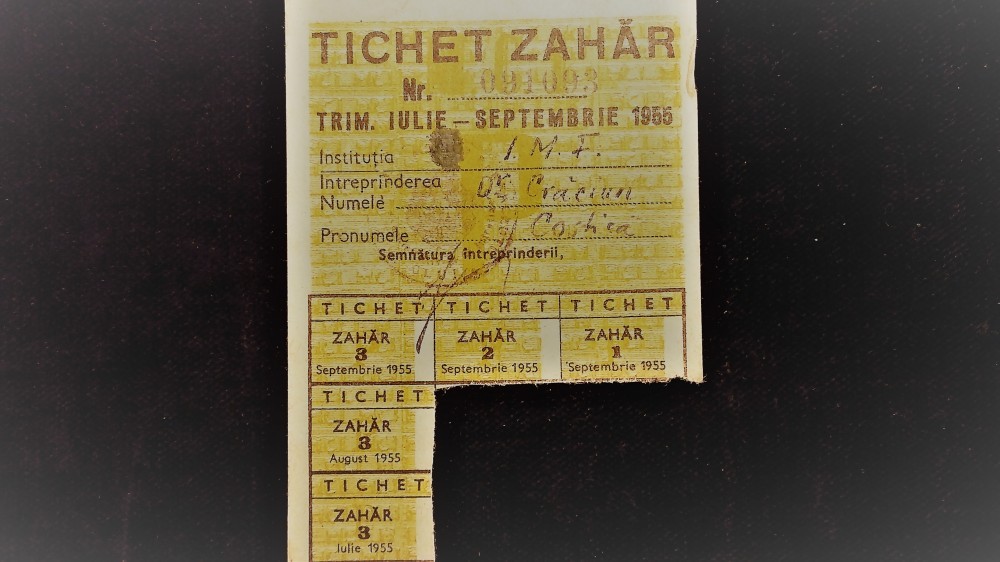 TICHET ZAHĂR
Nr. 091093
TRIM. IULIE — SEPTEMBRIE 1955
Instituția I. M. F.
Intreprinderea
Numele Crăciun
Pronumele Costica
Semnătura întreprinderii,
TICHET TICHET TICHET
ZAHĂR ZAHĂR ZAHĂR
3 2 1
Septembrie 1955 Septembrie 1955 Septembrie 1955
TICHET
ZAHĂR
3
August 1955
TICHET
ZAHĂR
3
Iulie 1955